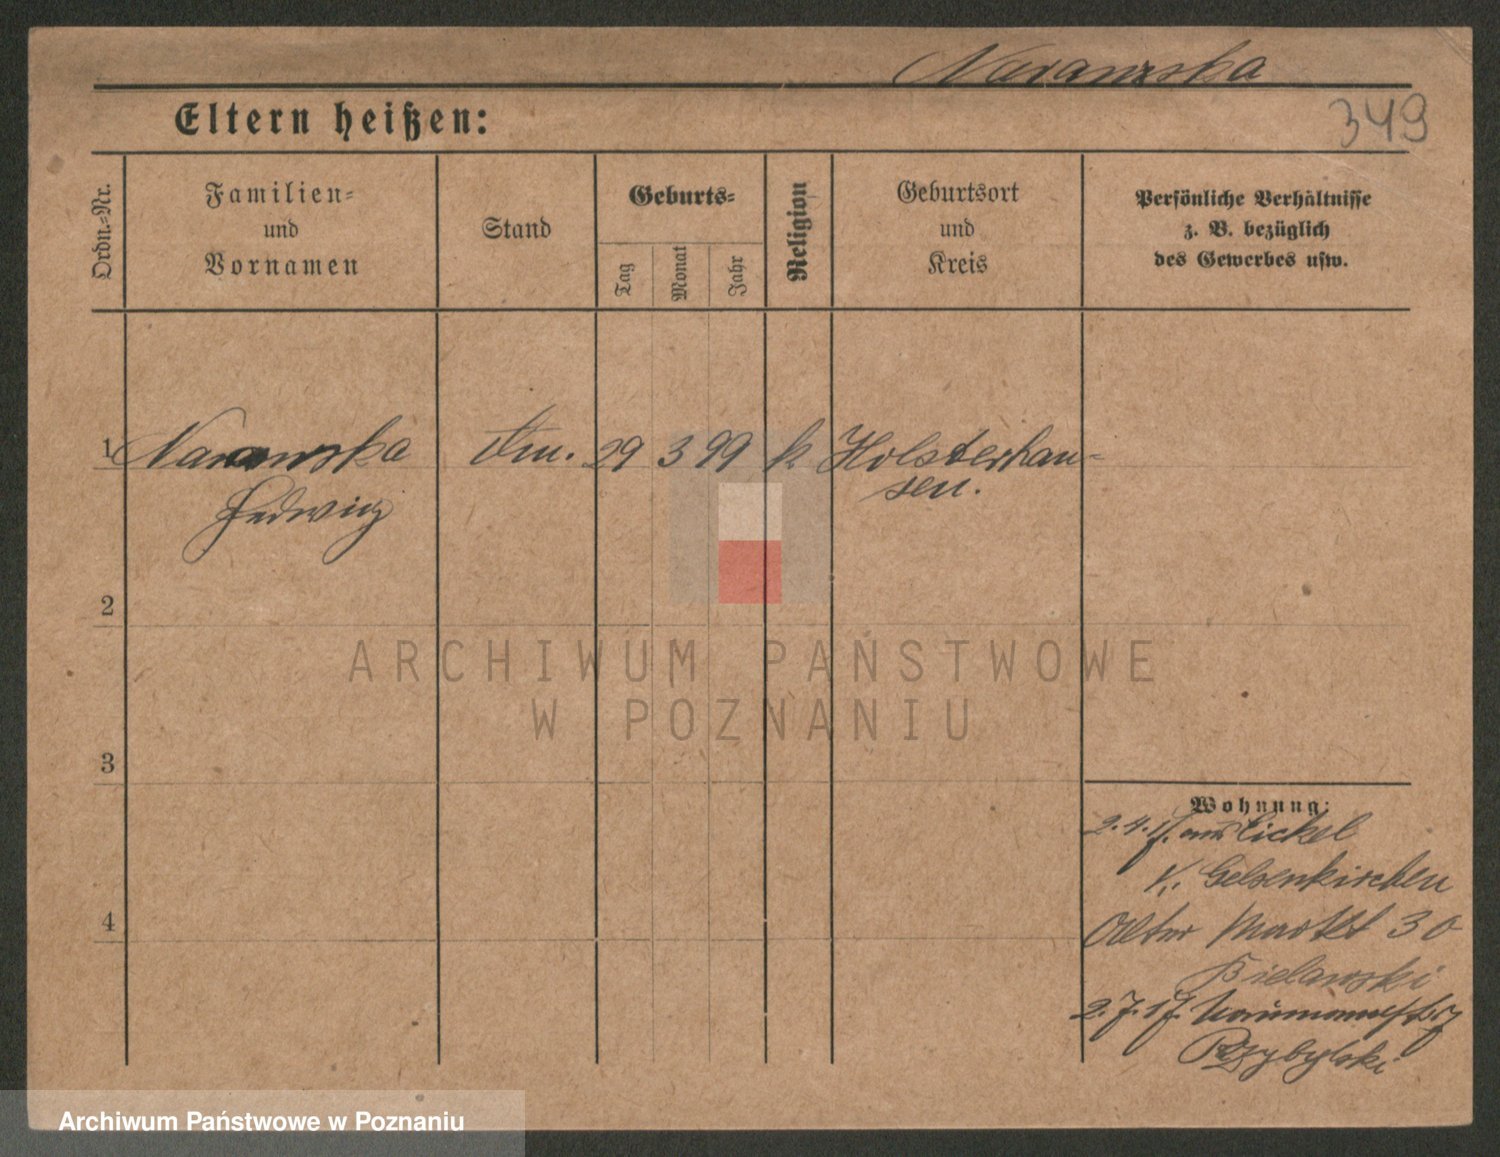 Naranzska
Eltern heißen:
349
Ordn.-Nr.
Familien-
und
Vornamen
Stand
Geburts-
Tag
Monat
Jahr
Religion
Geburtsort
und
Kreis
Persönliche Verhältnisse
z. B. bezüglich
des Gewerbes usw.
1
29 3 99 k Holsterhau-
sen.
Hedwig
2
3
4
ARCHIWUM PAŃSTWOWE
W POZNANIU
Wohnung:
2.4.17. aus Eickel
K. Gelsenkirchen
Alter Markt 30
Bielawski
2.7.17.
Przybylski
Archiwum Państwowe w Poznaniu